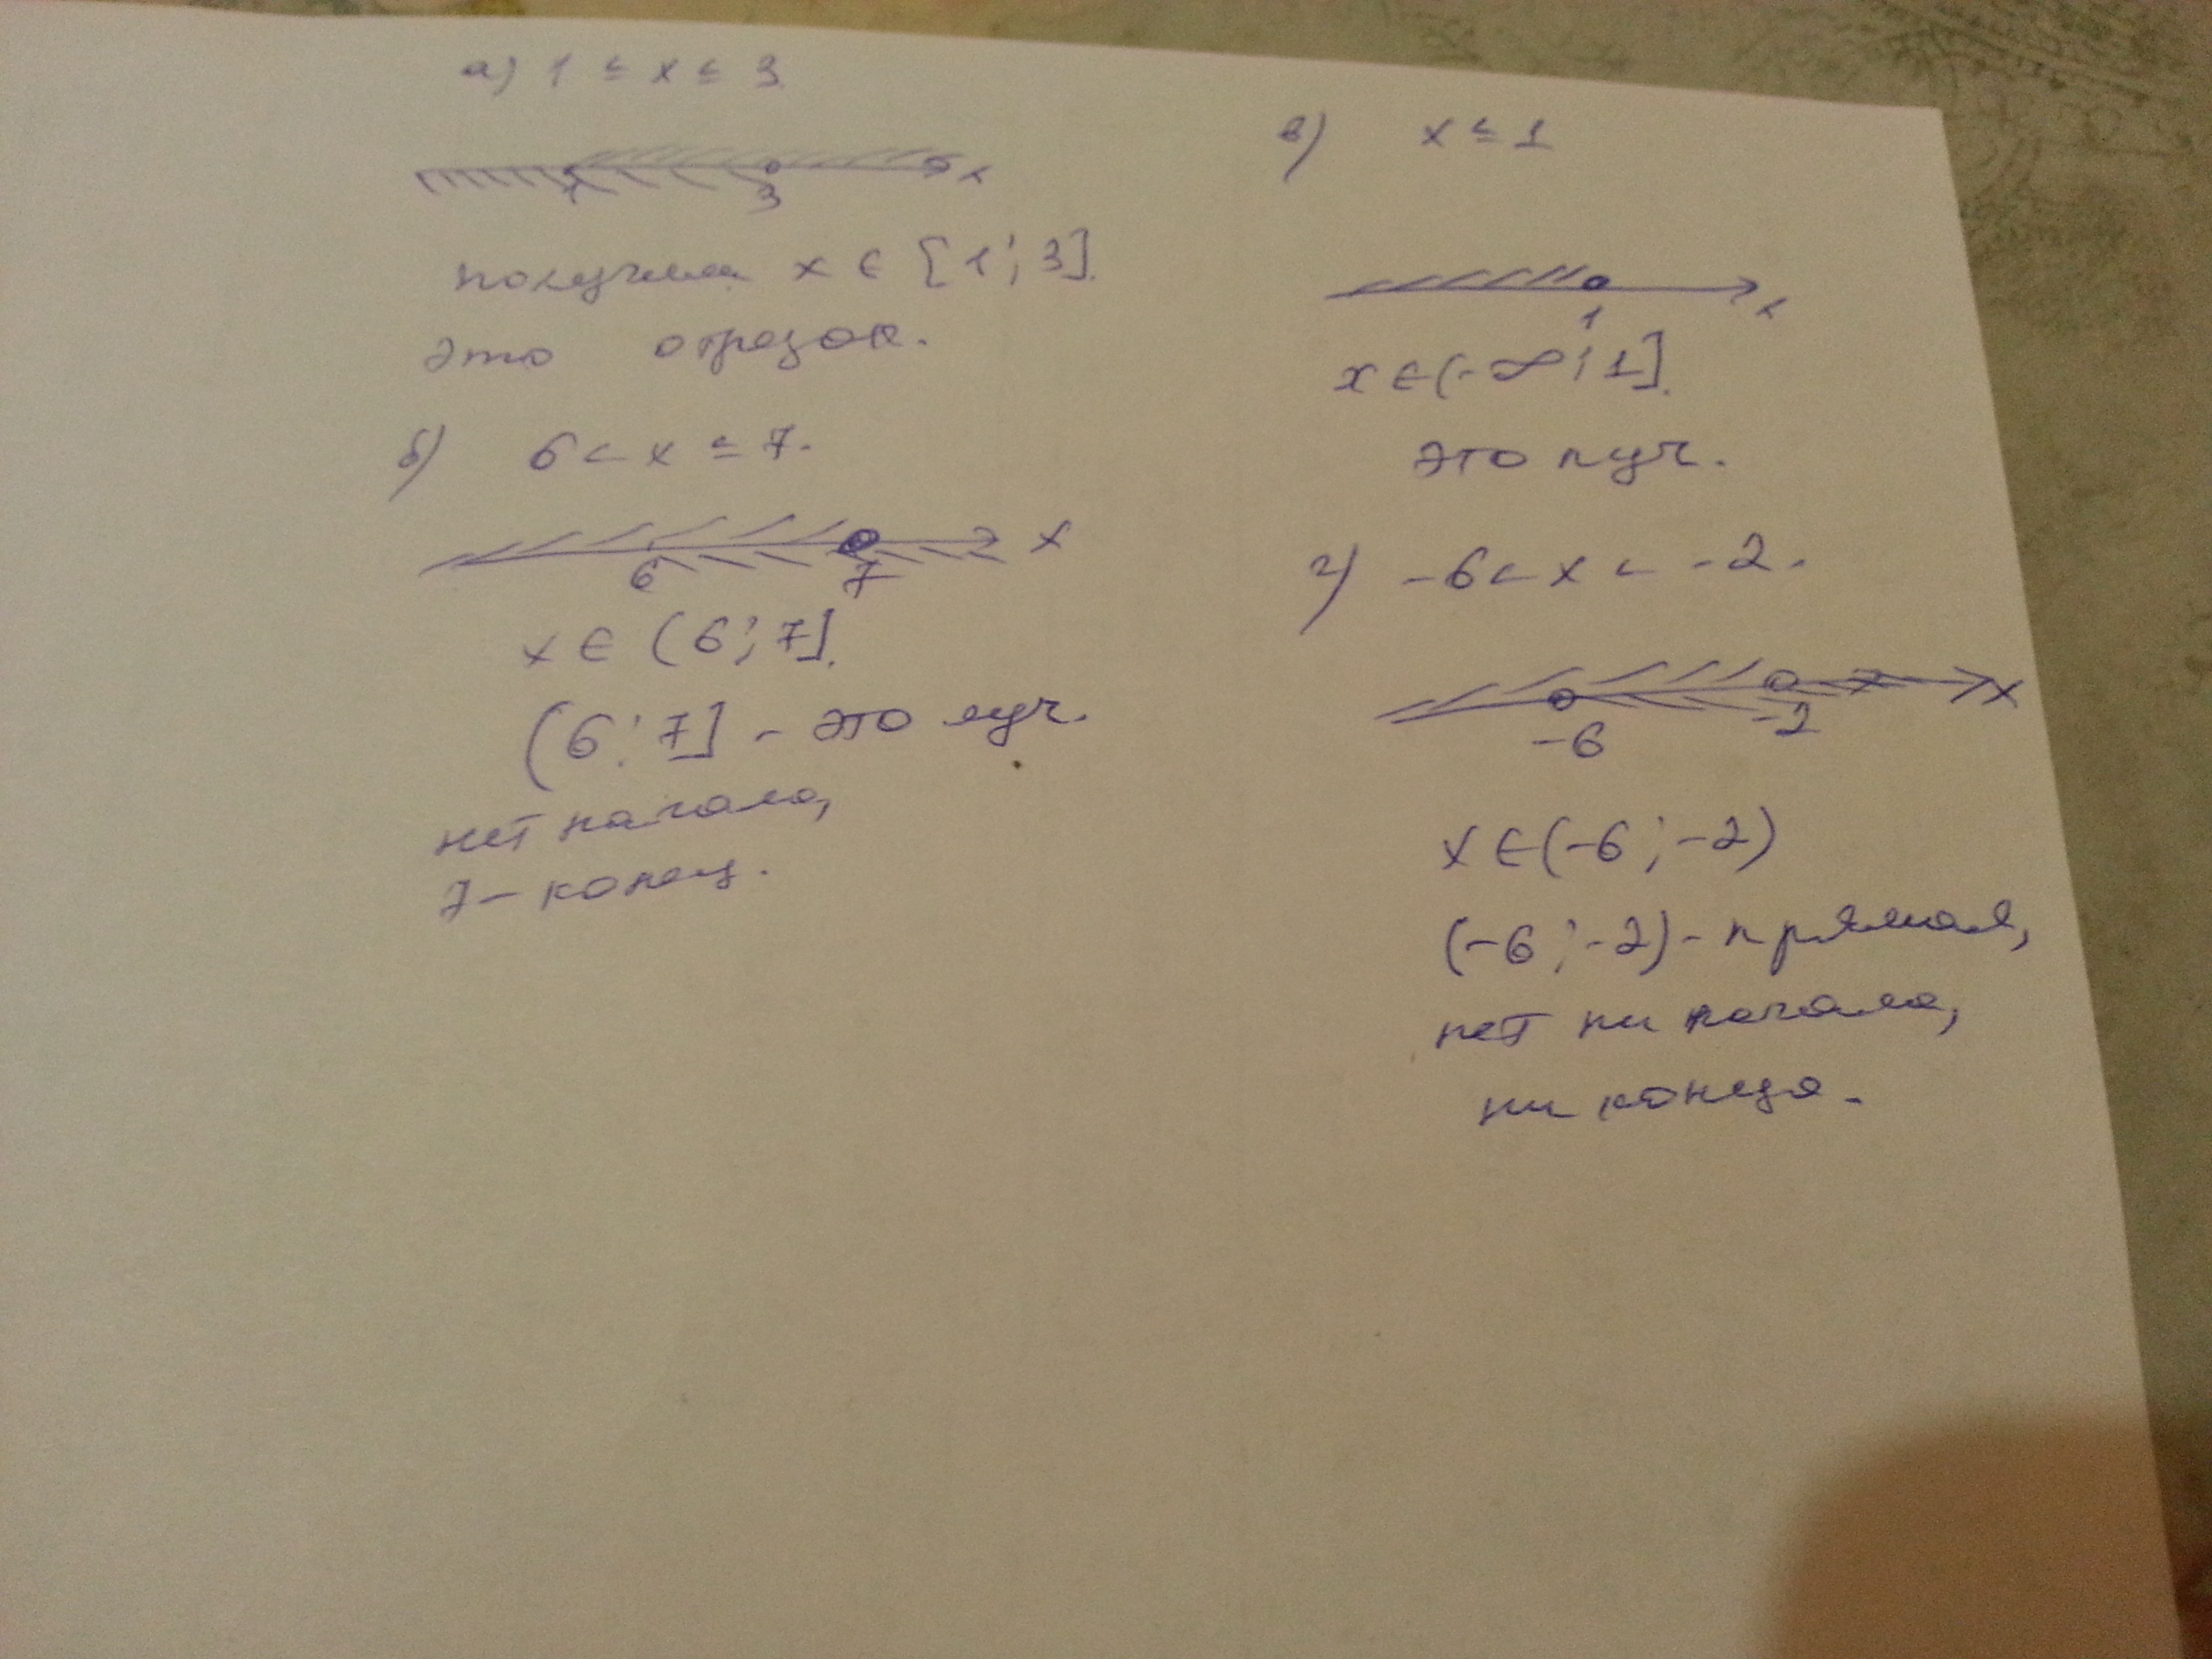 а) 1 ≤ x ≤ 3
1 3 x
получили x ∈ [1; 3].
это отрезок.
б) 6 < x ≤ 7.
6 7 x
x ∈ (6; 7].
(6; 7] - это луч.
нет начала,
7 - конец.
в) x ≤ 1
1 x
x ∈ (-∞; 1].
это луч.
г) -6 < x < -2.
-6 -2 x
x ∈ (-6; -2)
(-6; -2) - прямая,
нет ни начала,
ни конца.